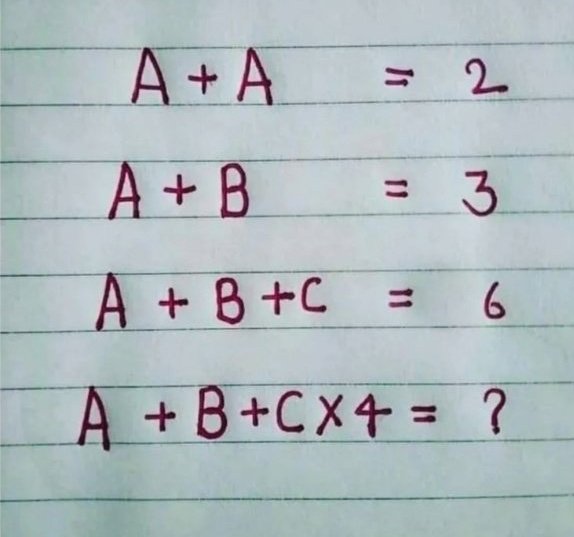 A + A = 2
A + B = 3
A + B + C = 6
A + B + C X 4 = ?